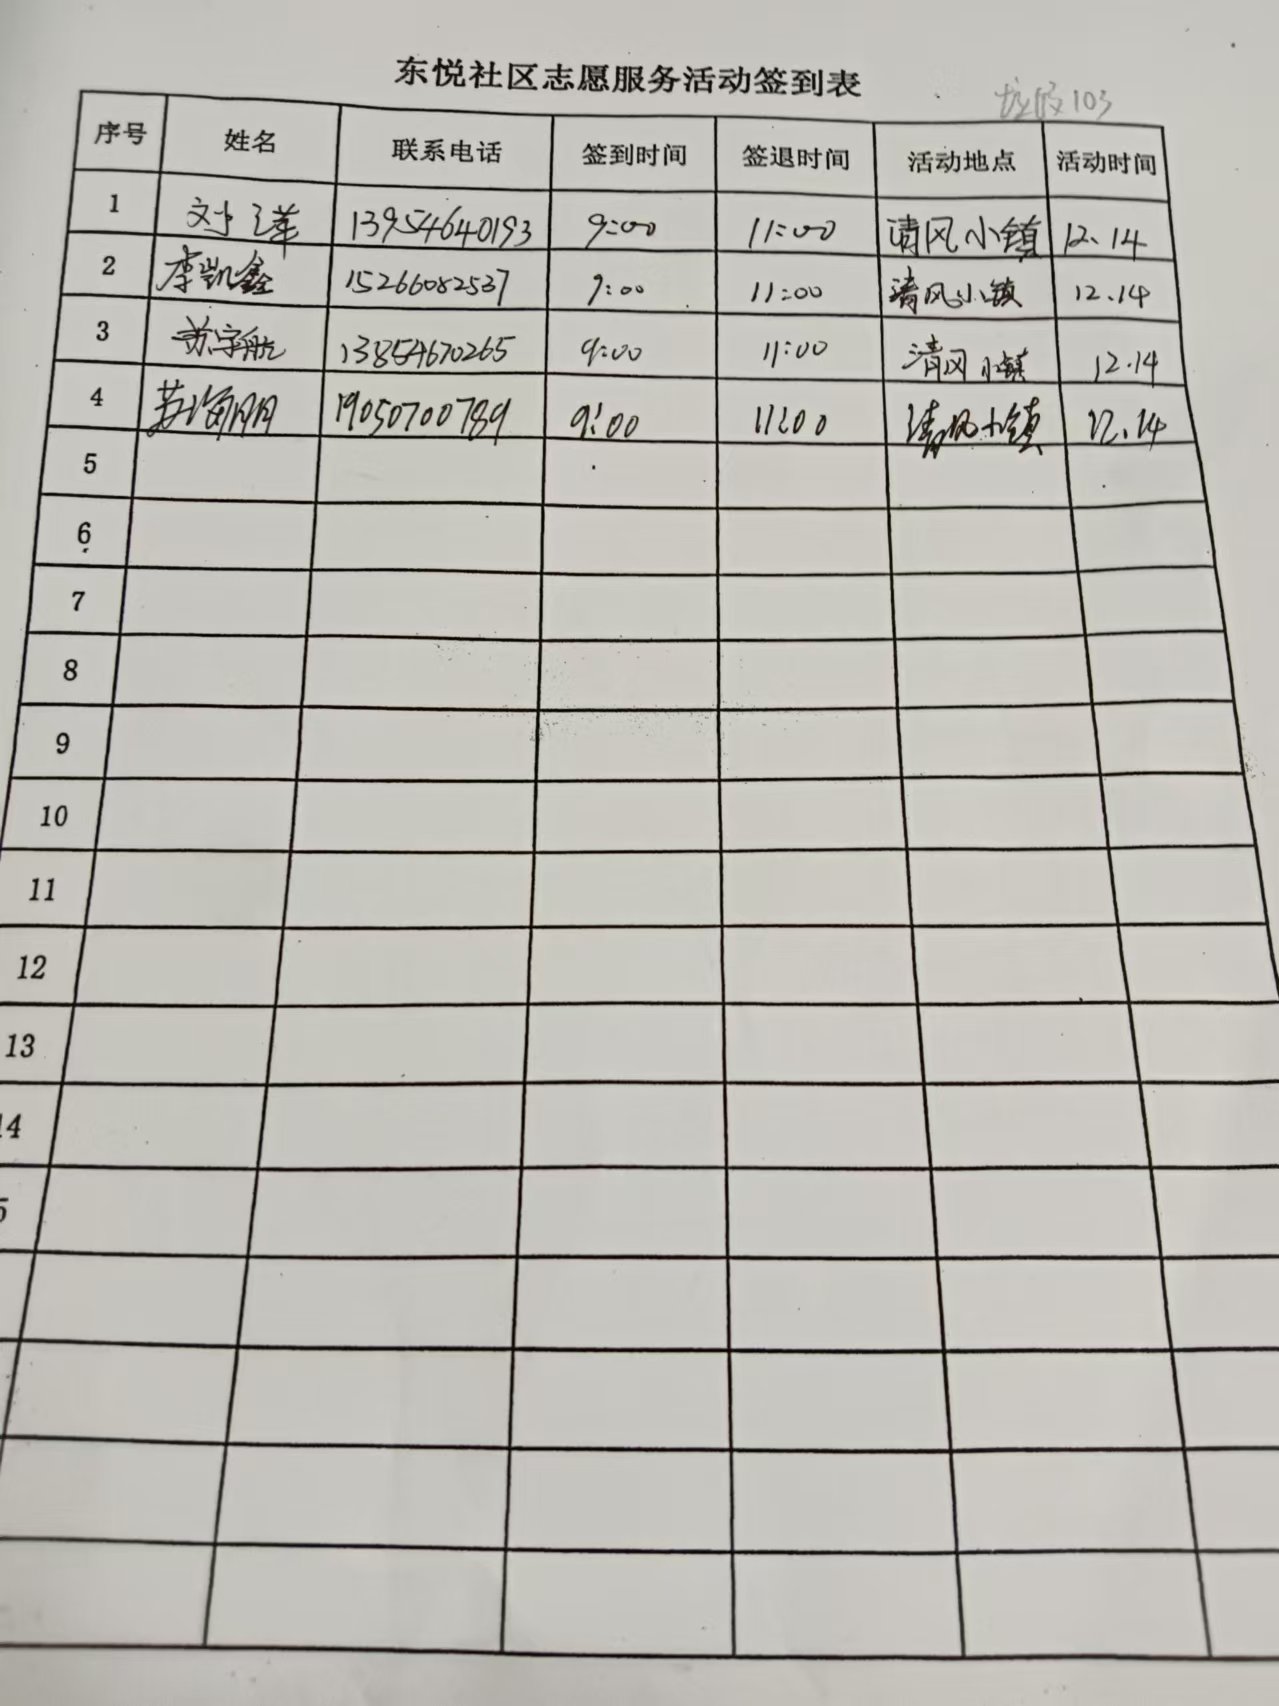 东悦社区志愿服务活动签到表
103
序号 姓名 联系电话 签到时间 签退时间 活动地点 活动时间
1 刘洋 13954640193 9:00 11:00 清风小镇 12.14
2 李凯鑫 15266082537 9:00 11:00 清风小镇 12.14
3 苏宇航 13854670265 9:00 11:00 清风小镇 12.14
4 苏海明 19050700789 9:00 11:00 清风小镇 12.14
5
6
7
8
9
10
11
12
13
14
5